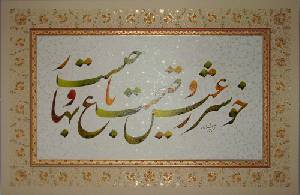 خوشتر ز عیش و صحبت باغ و بهار چیست